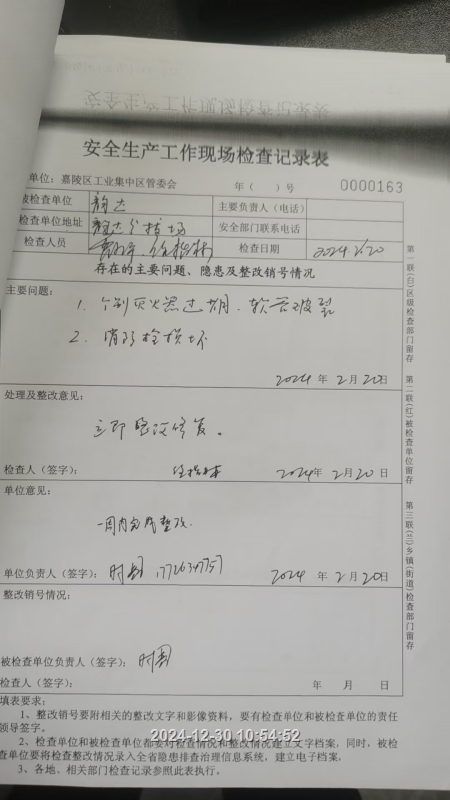 安全生产工作现场检查记录表
单位：嘉陵区工业集中区管委会 年（ ）号 0000163
被检查单位 韵达 主要负责人（电话）
检查单位地址 韵达分拨场 安全部门联系电话
检查人员 检查日期 2024 2.20
存在的主要问题、隐患及整改销号情况
主要问题：
1. 个别灭火器过期、软管破裂
2. 消防栓损坏
2024 年 2 月 20 日
处理及整改意见：
立即整改修复。
检查人（签字）： 2024 年 2 月 20 日
单位意见：
一周内完成整改.
单位负责人（签字）： 2024 年 2 月 20 日
整改销号情况：
被检查单位负责人（签字）：
检查人（签字）： 年 月 日
填表要求：
1、整改销号要附相关的整改文字和影像资料，要有检查单位和被检查单位的责任
领导签字。
2、检查单位和被检查单位都要对检查情况和整改情况建立文字档案，同时，被检
查单位要将检查整改情况录入全省隐患排查治理信息系统，建立电子档案。
3、各地、相关部门检查记录参照此表执行。
第一联（白）区级检查部门留存
第二联（红）被检查单位留存
第三联（兰）乡镇（街道）检查部门留存
2024-12-30 10:54:52